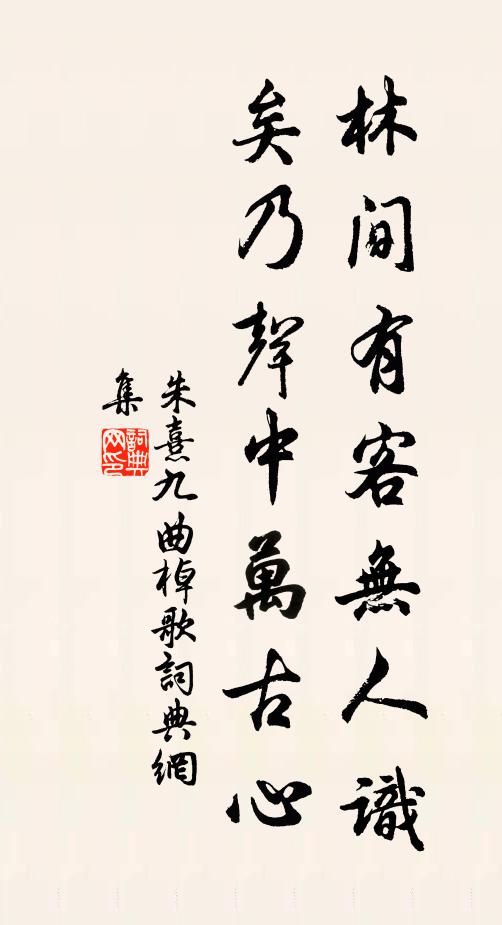 林间有客無人識
矣乃聲中萬古心
朱熹九曲棹歌詞典網
集
詞典网印